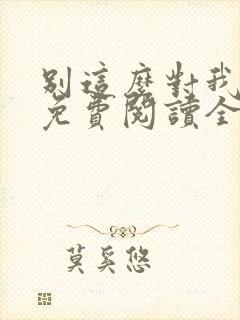 別這麼對我
免費閱讀全
莫奚悠